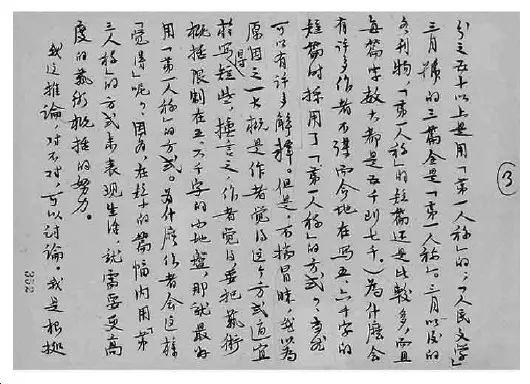 ③
分之五十以上是用「第一人称」的;「人民文学」
三月号的三篇全是「第一人称」。三月以后的
各刊物,「第一人称」的短篇还是比較多,而且
每篇字数大都是五千到七千。)為什麽会
有许多作者不约而同地在写五、六千字的
短篇时採用了「第一人称」的方式?当然
可以有许多解釋。但是,不揣冒昧,我以為
原因之一大概是作者觉得这个方式适宜
於写得短些,换言之,作者觉得要把藝術
概括限制在五、六千字的小地盤,那就最好
用「第一人称」的方式。為什麽作者会这样
「觉得」呢?因為,在短小的篇幅内用「第
三人称」的方式来表现生活,就需要更高
度的藝術概括的努力。
我这推論,对不对,可以討論。我是根据
352